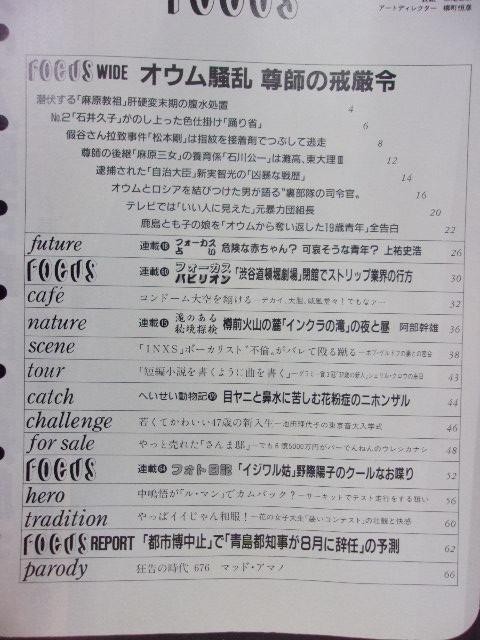 FOCUS
アートディレクター 柳町恒彦
FOCUS WIDE オウム騒乱 尊師の戒厳令
潜伏する「麻原教祖」肝硬変末期の腹水処置 4
No.2「石井久子」がのし上った色仕掛け「踊り省」 6
假谷さん拉致事件「松本剛」は指紋を接着剤でつぶして逃走 8
尊師の後継「麻原三女」の養育係「石川公一」は灘高、東大理Ⅲ 12
逮捕された「自治大臣」新実智光の「凶暴な戦歴」 14
オウムとロシアを結びつけた男が語る“裏部隊の司令官” 16
テレビでは「いい人に見えた」元暴力団組長 20
鹿島とも子の娘を「オウムから奪い返した19歳青年」全告白 22
future 連載⑱ フォーカス占い 危険な赤ちゃん? 可哀そうな青年? 上祐史浩 26
FOCUS 連載 フォーカスパビリオン 「渋谷道頓堀劇場」閉館でストリップ業界の行方 30
café コンドーム大空を翔ける 32
nature 連載⑮ 滝のある秘境探検 樽前火山の麓「インクラの滝」の夜と昼 阿部幹雄 36
scene 「INXS」ボーカリスト“不倫”がバレて殴る蹴る 38
tour 「短編小説を書くように曲を書く」 43
catch へいせい動物記 目ヤニと鼻水に苦しむ花粉症のニホンザル 44
challenge 若くてかわいい47歳の新入生 46
for sale やっと売れた「さんま邸」 48
FOCUS 連載 フォト日記 「イジワル姑」野際陽子のクールなお喋り 52
hero 中嶋悟が「ル・マン」でカムバック? 56
tradition やっぱイイじゃん和服! 60
FOCUS REPORT 「都市博中止」で「青島都知事が8月に辞任」の予測 62
parody 狂告の時代 676 マッド・アマノ 66